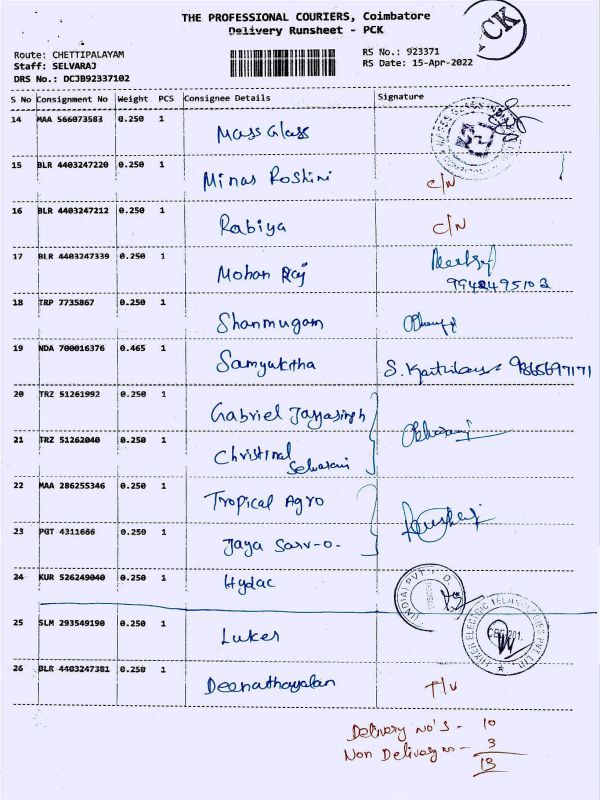 THE PROFESSIONAL COURIERS, Coimbatore
Delivery Runsheet - PCK
PCK
Route: CHETTIPALAYAM
Staff: SELVARAJ
DRS No.: DCJB92337102
RS No.: 923371
RS Date: 15-Apr-2022
S No Consignment No Weight PCS Consignee Details Signature
14 MAA 566073583 0.250 1 Mass Glass
15 BLR 4403247220 0.250 1 Minas Roshini C/N
16 BLR 4403247212 0.250 1 Rabiya C/N
17 BLR 4403247339 0.250 1 Mohan Raj
9942495102
18 TRP 7735867 0.250 1 Shanmugam
19 NDA 700016376 0.465 1 Samyuktha S. 9865697171
20 TRZ 51261992 0.250 1 Gabriel Jayasingh
21 TRZ 51262040 0.250 1 Christinal
Selvarani
22 MAA 286255346 0.250 1 Tropical Agro
23 PGT 4311666 0.250 1 Jaya Sarv-o.
24 KUR 526249040 0.250 1 Hydac
25 SLM 293549190 0.250 1 Luker
LUKER ELECTRIC TECHNOLOGIES PVT. LTD.
26 BLR 4403247381 0.250 1 Deenathayalan
Delivery No's - 10
Non Delivery No - 3
13